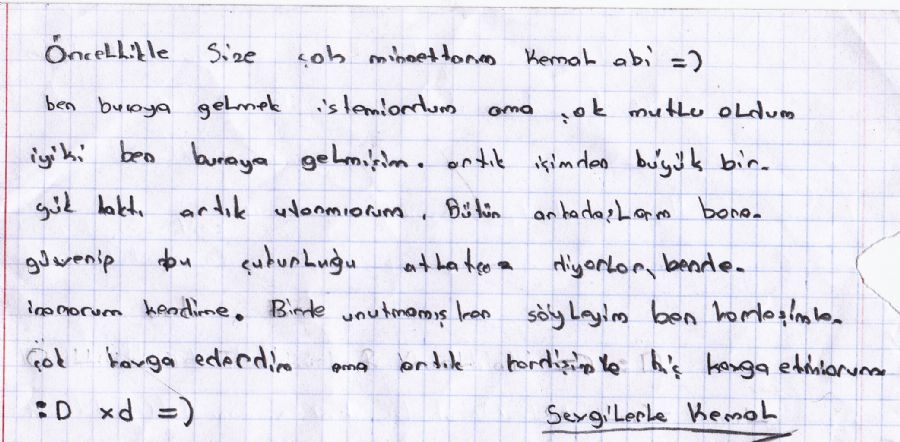 Öncellikle Size çok minnettarım Kemal abi =)
ben buraya gelmek istemiordum ama çok mutlu oldum
iyiki ben buraya gelmişim. artık içimden büyük bir
yük kaktı artık utanmıorum. Bütün arkadaşlarm bana
güvenip bu çukurluğu atlatçan diyorlar, bende
inanorum kendime. Birde unutmamışken söyleyim ben kardeşimle
çok kavga ederdim ama artık kardişimle hiç kavga etmiorum
:D xd =) Sevgilerle Kemal